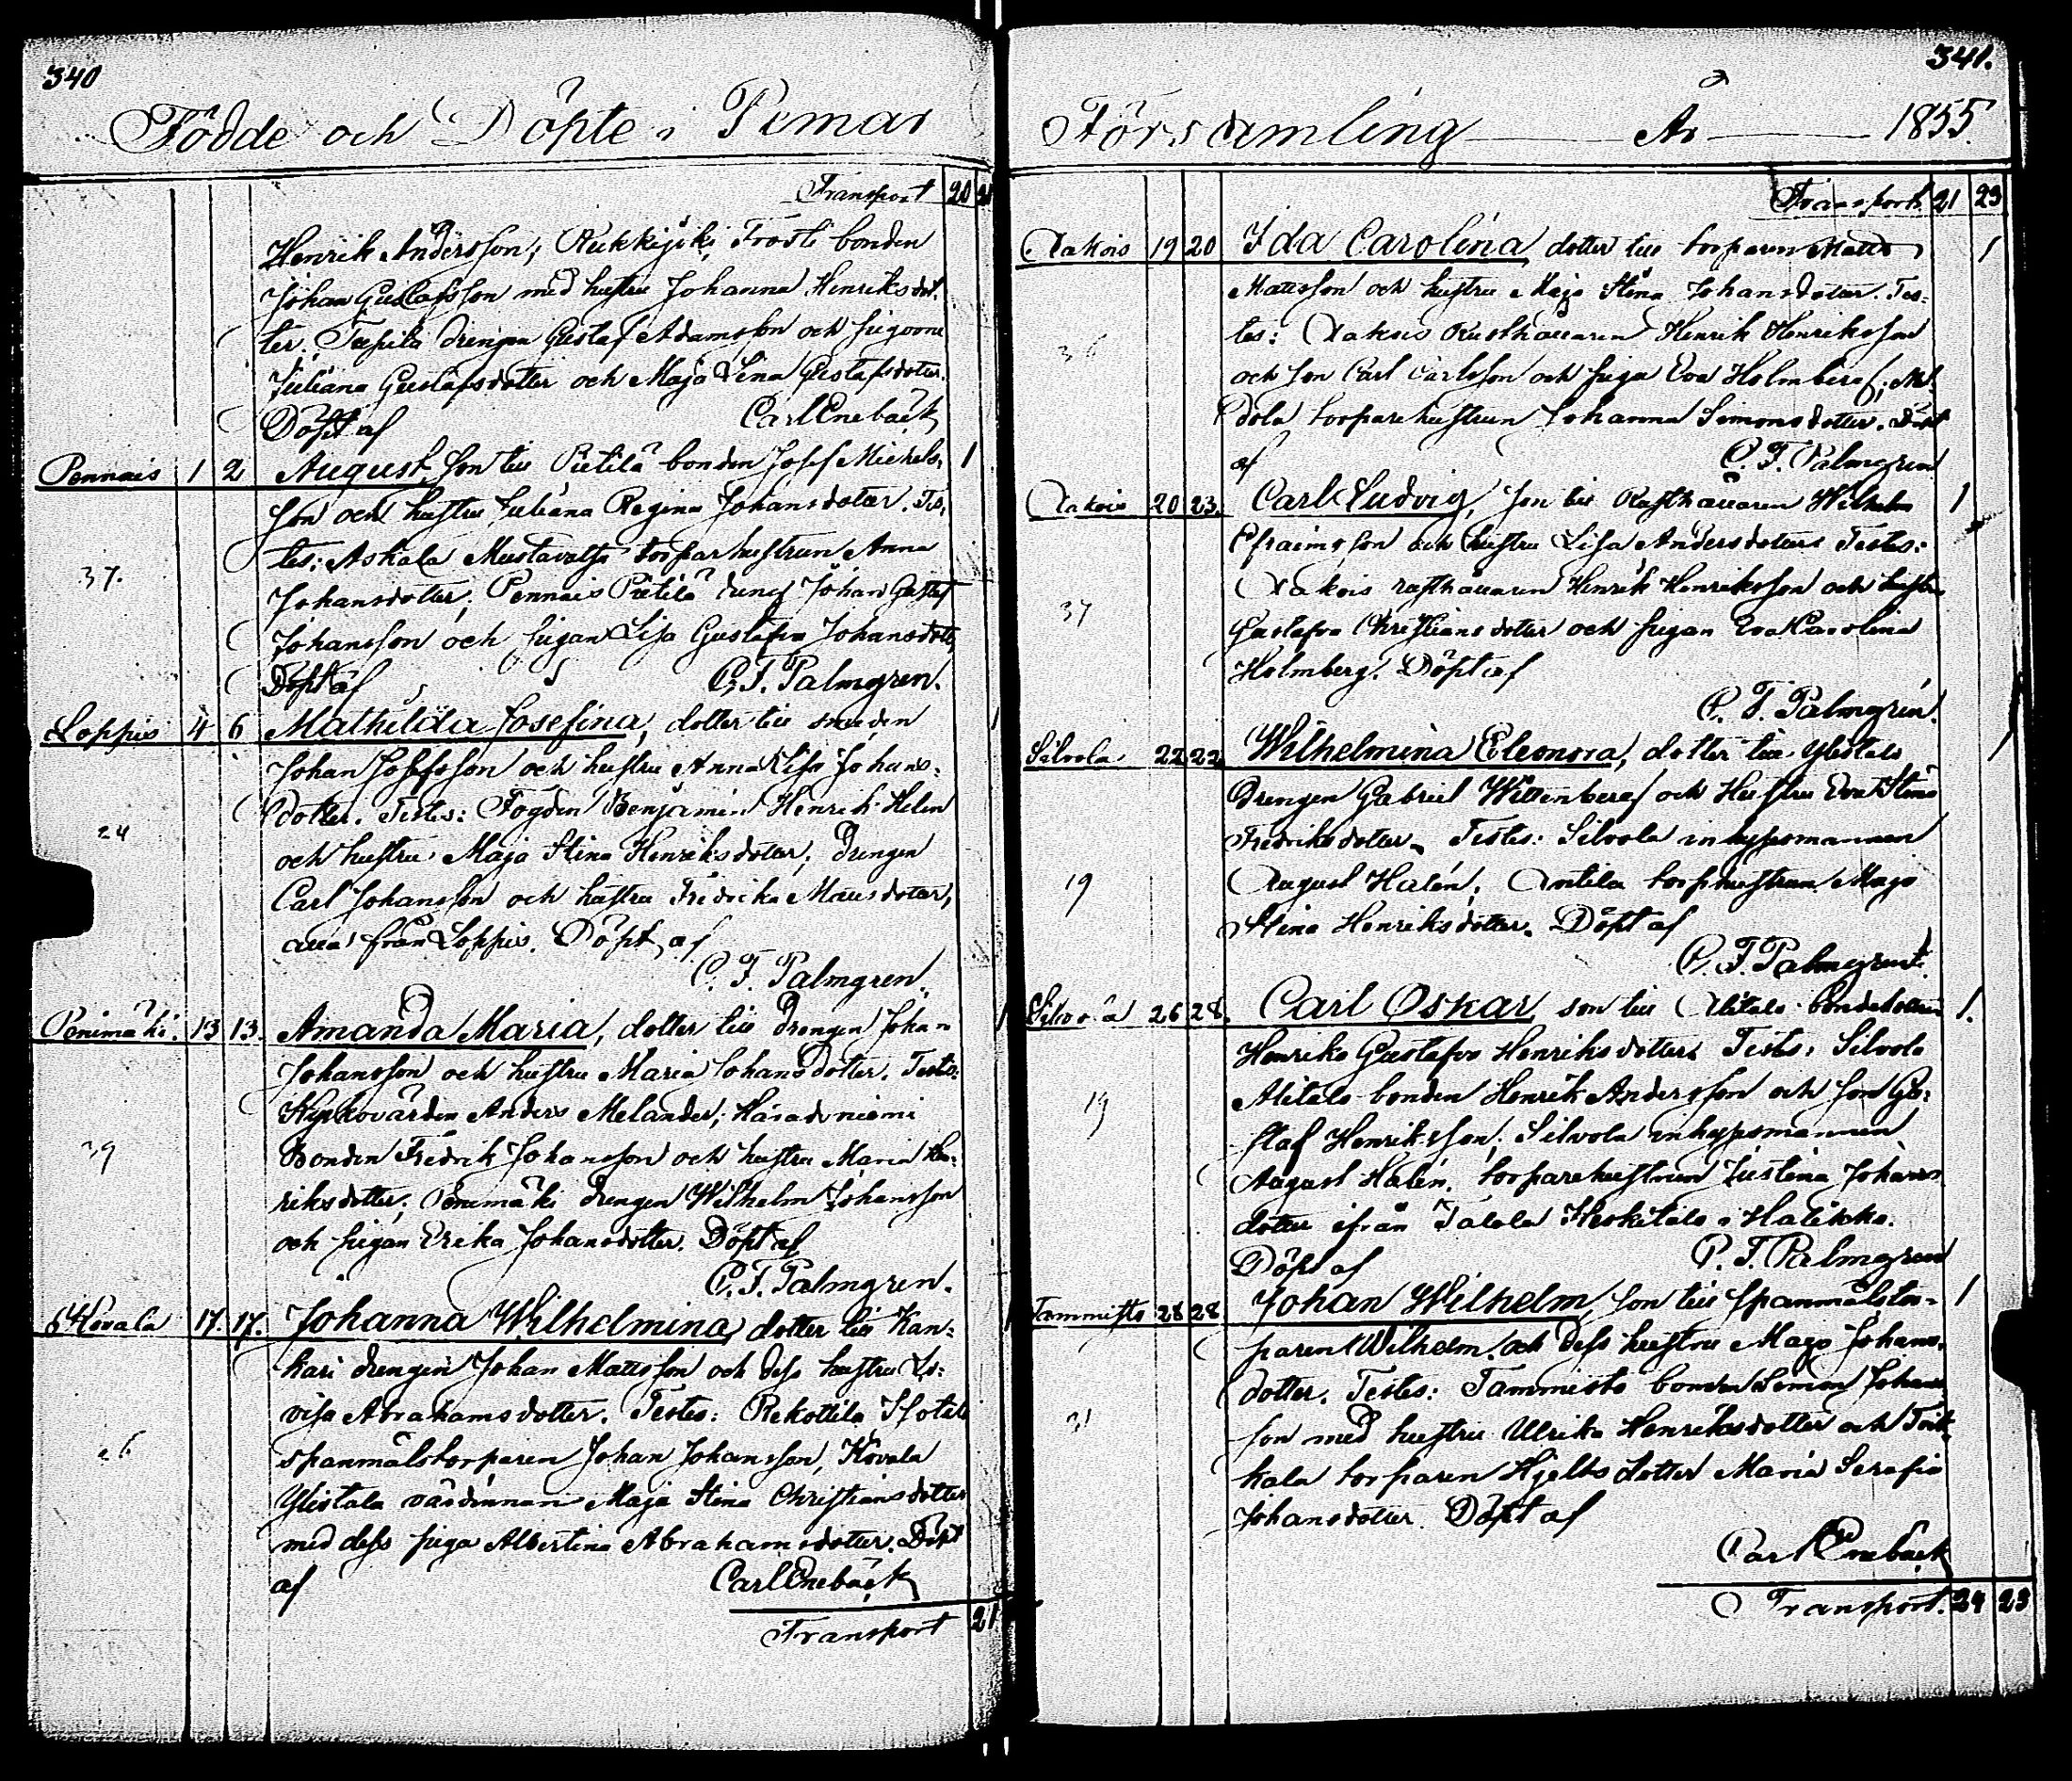 340
Födde och Döpte i Pemar
Transport 20
Henrik Andersson; Rukkijoki, Trosti bonden
Johan Gustafsson med hustru Johanna Henriksdot-
ter. drengen Gustaf Adamsson och pigorne
Juliana Gustafsdotter och Maja Lena Gustafsdotter.
Döpt af Carl Enebäck
Pennais 1 2 August, son till Pietilä bonden Josef Michels- 1
son och hustru Juliana Regina Johansdotter. Tes-
tes: Askala Mustavalta torparhustrun Anna
37.
Johansdotter; Pennais Pietilä dreng Johan Gustaf
Johansson och pigan Lisa Gustafva Johansdott.
Döpt af C. F. Palmgren.
Loppis 4 6 Mathilda Josefina, dotter till smeden 1
Johan Josefsson och hustru Anna Lisa Johans-
dotter. Testes: Fogden Benjamin Henrik Helin
24
och hustru Maja Stina Henriksdotter; Drengen
Carl Johansson och hustru Fredrika Mattsdotter,
alla från Loppis. Döpt af
C. F. Palmgren.
Penimäki. 13 13. Amanda Maria, dotter till Drengen Johan 1
Johansson och hustru Maria Johansdotter. Testes:
Kyrkovärden Anders Melander; niemi
39
Bonden Fredrik Johansson och hustru Maria Hen-
riksdotter; Penimäki Drengen Wilhelm Johansson
och pigan Erika Johansdotter. Döpt af
C. F. Palmgren.
Kovala 17. 17. Johanna Wilhelmina, dotter till Kan-
kari drengen Johan Mattsson och dess hustru Lo-
visa Abrahamsdotter. Testes: Rekottila Isotalo
26
spanmålstorparen Johan Johansson, Kovala
Ylistalo värdinnan Maja Stina Christiansdotter
med dess piga Albertina Abrahamsdotter. Döpt
af Carl Enebäck
Transport 21
341.
Församling År 1855.
Transport. 21 23
Rakois 19 20 Ida Carolina, dotter till torparen Matts 1
Mattsson och hustru Maja Stina Johansdotter. Tes-
36
tes: Rakois Rusthållaren Henrik Henriksson
och son Carl Carlsson och piga Eva Holmberg;
torpare hustrun Johanna Simonsdotter. Döpt
af C. F. Palmgren
Rakois 20 23. Carl Ludvig, son till Rusthållaren Wilhelm 1
Efraimsson och hustru Lisa Andersdotter. Testes:
Rakois rusthållaren Henrik Henriksson och hustru
37
Gustafva Christiansdotter och pigan Eva Carolina
Holmberg. Döpt af
C. F. Palmgren.
Silvola 22 22 Wilhelmina Eleonora, dotter till Ylistalo 1
Drengen Gabriel Willenberg och Hustru Eva Stina
Fredriksdotter. Testes: Silvola inhysesmannen
19
August Halén; Antila torphustrun Maja
Stina Henriksdotter. Döpt af
C. F. Palmgren.
Silvola 26 28. Carl Oskar, son till Alitalo bondedottern 1.
Henrika Gustafva Henriksdotter. Testes: Silvola
19
Alitalo bonden Henrik Andersson och son Gu-
staf Henriksson; Silvola inhysesmannen
August Halén, torparehustrun Justina Johans
dotter ifrån Talola Heskitalo i Halikko.
Döpt af C. F. Palmgren
Tammisto 28 28 Johan Wilhelm, son till spanmålstor- 1
paren Wilhelm och Dess hustru Maja Johans-
dotter. Testes: Tammisto bonden Simon Johans
31
son med hustru Ulrika Henriksdotter och
kala torparen Hjelts dotter Maria Serafia
Johansdotter. Döpt af
Carl Enebäck
Transport. 24 23